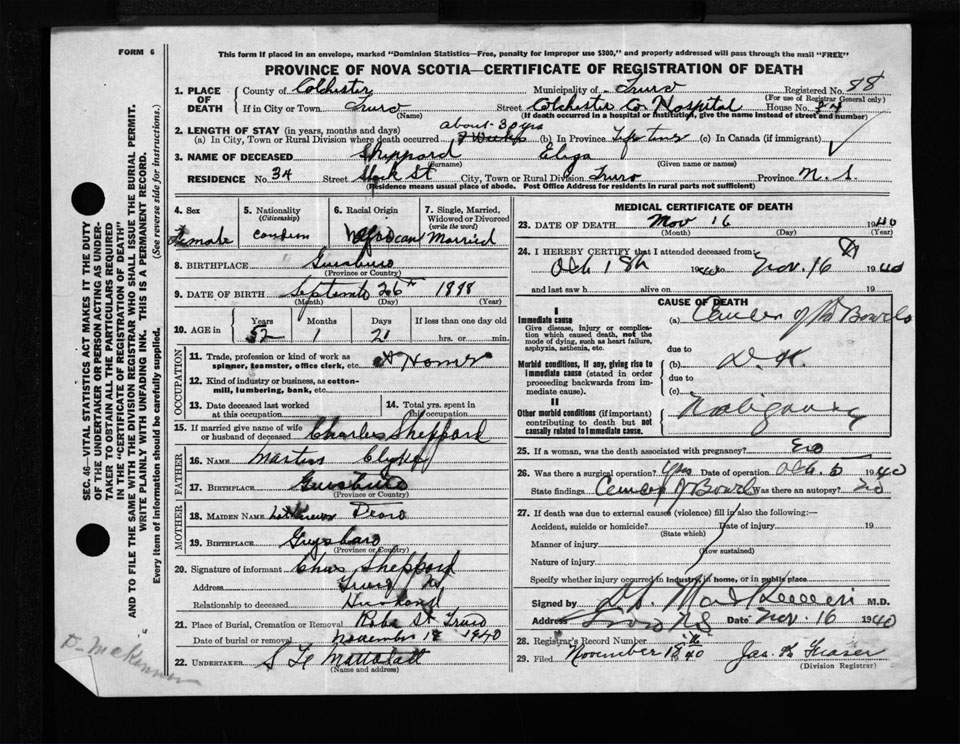 FORM 6
This form if placed in an envelope, marked "Dominion Statistics—Free, penalty for improper use $300," and properly addressed will pass through the mail "FREE"
PROVINCE OF NOVA SCOTIA—CERTIFICATE OF REGISTRATION OF DEATH
1. PLACE OF DEATH
County of Colchester Municipality of Truro Registered No. 88
(For use of Registrar General only)
If in City or Town Truro Street Colchester Co. Hospital House No.
(Name) (If death occurred in a hospital or institution, give the name instead of street and number)
2. LENGTH OF STAY (in years, months and days) about 30 yrs
(a) In City, Town or Rural Division where death occurred (b) In Province (c) In Canada (if immigrant)
3. NAME OF DECEASED Sheppard Eliza
(Surname) (Given name or names)
RESIDENCE No. 34 Street St City, Town or Rural Division Truro Province N. S.
(Residence means usual place of abode. Post Office Address for residents in rural parts not sufficient)
4. Sex Female
5. Nationality (Citizenship)
6. Racial Origin
7. Single, Married, Widowed or Divorced (write the word) Married
8. BIRTHPLACE
(Province or Country)
9. DATE OF BIRTH September 26th 1888
(Month) (Day) (Year)
10. AGE in Years 52 Months 1 Days 21 If less than one day old hrs. or min.
OCCUPATION
11. Trade, profession or kind of work as spinner, teamster, office clerk, etc. At Home
12. Kind of industry or business, as cotton-mill, lumbering, bank, etc.
13. Date deceased last worked at this occupation
14. Total yrs. spent in this occupation
15. If married give name of wife or husband of deceased Charles Sheppard
FATHER
16. Name Martin
17. BIRTHPLACE
(Province or Country)
MOTHER
18. MAIDEN NAME
19. BIRTHPLACE Guysboro
(Province or Country)
20. Signature of informant Chas Sheppard
Address Truro NS
Relationship to deceased Husband
21. Place of Burial, Cremation or Removal Robie St Truro
Date of burial or removal November 18 1940
22. UNDERTAKER
(Name and address)
MEDICAL CERTIFICATE OF DEATH
23. DATE OF DEATH Nov 16 1940
(Month) (Day) (Year)
24. I HEREBY CERTIFY that I attended deceased from:
Oct 18th 1940 to Nov. 16 1940
and last saw h alive on 19
CAUSE OF DEATH
I
Immediate cause
Give disease, injury or complication which caused death, not the mode of dying, such as heart failure, asphyxia, asthenia, etc.
(a) Cancer of the Bowels
due to
Morbid conditions, if any, giving rise to immediate cause (stated in order proceeding backwards from immediate cause).
(b) D. K.
due to
(c)
II
Other morbid conditions (if important) contributing to death but not causally related to immediate cause.
Malignancy
25. If a woman, was the death associated with pregnancy? No
26. Was there a surgical operation? Yes Date of operation Oct. 5 1940
State findings Cancer of Bowel Was there an autopsy? no
27. If death was due to external causes (violence) fill in also the following:—
Accident, suicide or homicide? Date of injury 19
(State which)
Manner of injury
(How sustained)
Nature of injury
Specify whether injury occurred in industry, in home, or in public place
Signed by M.D.
Address Truro NS Date Nov. 16 1940
28. Registrar's Record Number
29. Filed November 18th 1940 Jas. Fraser
(Division Registrar)
SEC. 46—VITAL STATISTICS ACT MAKES IT THE DUTY OF THE UNDERTAKER OR PERSON ACTING AS UNDERTAKER TO OBTAIN ALL THE PARTICULARS REQUIRED IN THE "CERTIFICATE OF REGISTRATION OF DEATH"
AND TO FILE THE SAME WITH THE DIVISION REGISTRAR WHO SHALL ISSUE THE BURIAL PERMIT.
WRITE PLAINLY WITH UNFADING INK. THIS IS A PERMANENT RECORD.
Every item of information should be carefully supplied. (See reverse side for instructions.)